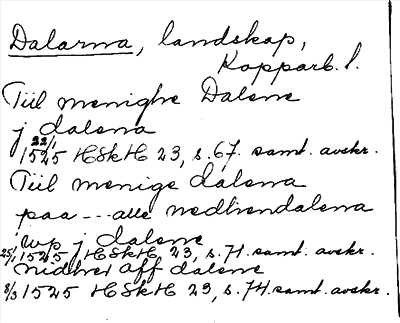 Dalarna, landskap,
Kopparb. l.
Tiil menighe Dalene
j dalena
22/1 1525 HSkH 23, s. 67. samt. avskr.
Tiil menige dalena
paa --- alle nedhrendalena
wp j dalene
25/1 1525 HSkH 23, s. 71. samt. avskr.
nidhrer aff dalene
8/3 1525 HSkH 23, s. 74. samt. avskr.